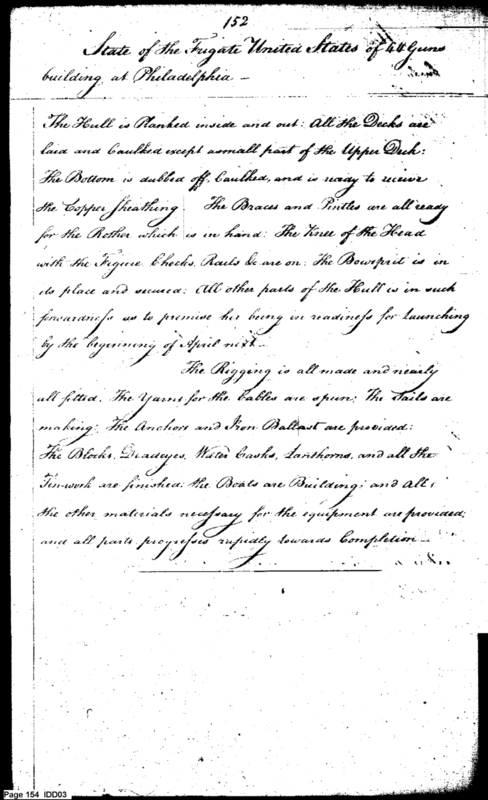 152
State of the Frigate United States of 44 Guns
building at Philadelphia —
The Hull is Planked inside and out: All the Decks are
laid and Caulked except a small part of the Upper Deck:
The Bottom is dubbed off, Caulked, and is ready to receive
the Copper Sheathing The Braces and Pintles are all ready
for the Rother which is in hand: The Knee of the Head
with the Figure Cheeks, Rails &c are on: The Bowsprit is in
its place and secured: All other parts of the Hull is in such
forwardness as to promise her being in readiness for launching
by the beginning of April next —
The Rigging is all made and nearly
all fitted. The Yarns for the Cables are spun; The Sails are
making; The Anchors and Iron Ballast are provided:
The Blocks, Deadeyes, Water Casks, Lanthorns, and all the
Tin-work are finished: the Boats are Building; and All,
the other materials necessary for the equipment are provided;
and all parts progresses rapidly towards Completion —
Page 154 IDD03